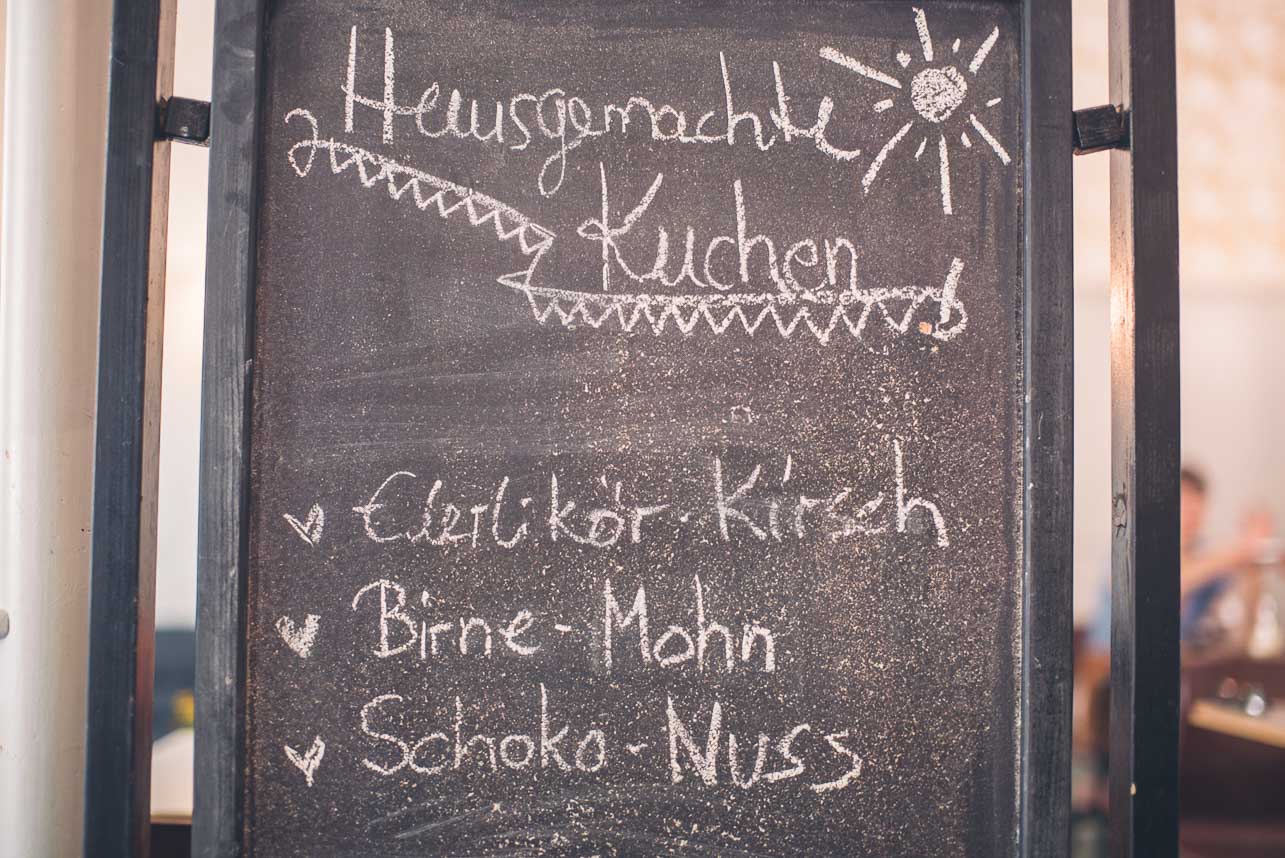 Hausgemachte
Kuchen
Eierlikör-Kirsch
Birne-Mohn
Schoko-Nuss